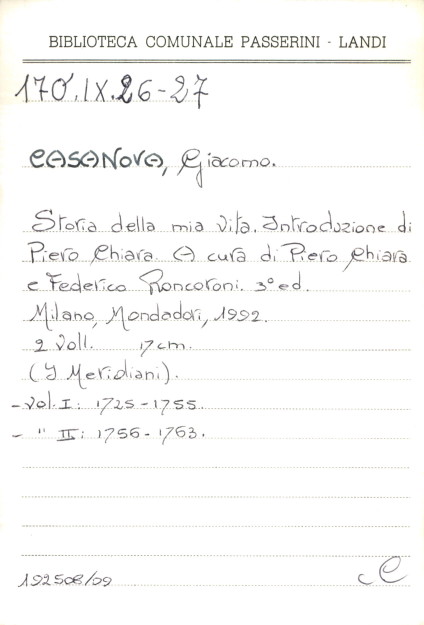 BIBLIOTECA COMUNALE PASSERINI - LANDI
170.IX.26-27
CASANOVA, Giacomo.
Storia della mia vita. Introduzione di
Piero Chiara. A cura di Piero Chiara
e Federico Roncoroni. 3° ed.
Milano, Mondadori, 1992.
2 voll. 17 cm.
(I Meridiani).
- vol. I: 1725-1755.
- " II: 1756-1763.
192508/09